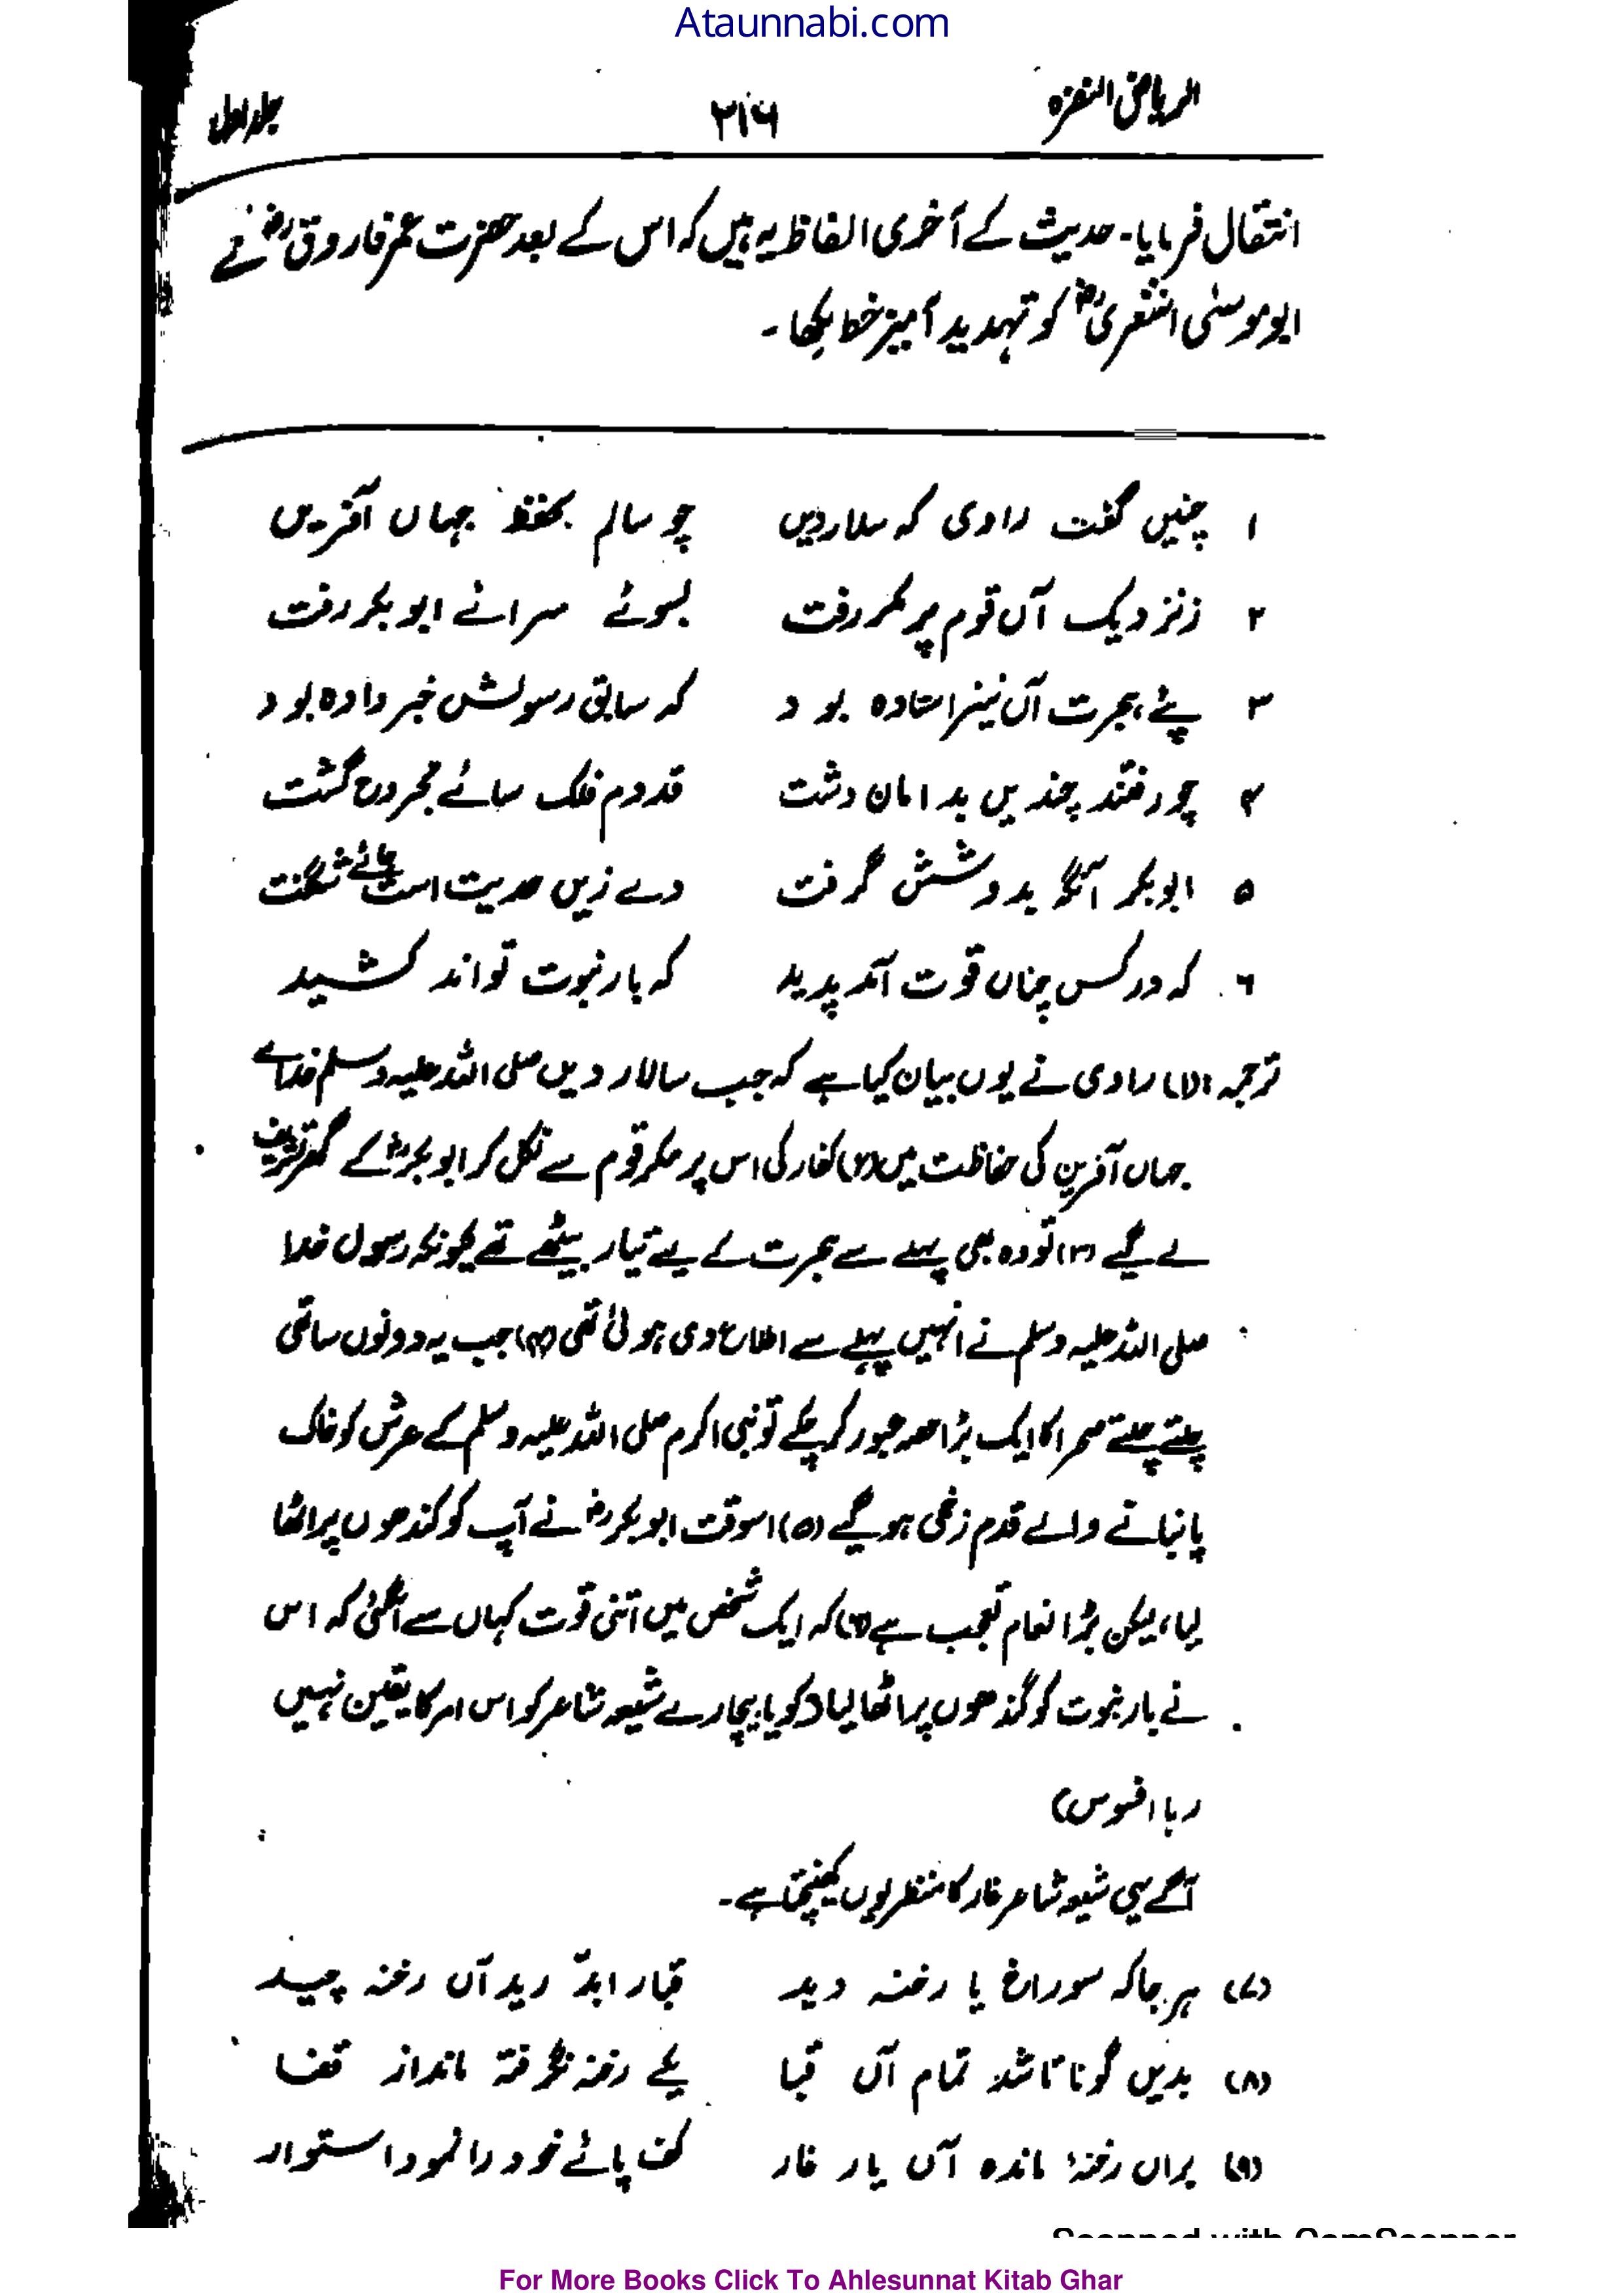 Ataunnabi.com
الریاض النضرہ ۲۱۶ جلد اول
انتقال فرمایا۔ حدیث کے آخری الفاظ یہ ہیں کہ اس کے بعد حضرت عمر فاروقؓ نے
ابو موسٰی اشعریؓ کو تہدید آمیز خط لکھا۔
۱ چنیں گفت راوی کہ سالار دیں چو سالم بحفظ جہاں آفریں
۲ زنزدیک آں قوم پر مکر رفت بسوئے سرائے ابو بکر رفت
۳ پئے ہجرت آں نیز استادہ بود کہ سابق رسولش خبر دادہ بود
۴ چو رفتند چندیں بدامان دشت قدوم فلک سائے مجروح گشت
۵ ابوبکر آنگہ بدوشش گرفت ولے زیں حدیث است جائے شگفت
۶ کہ در کس چناں قوت آمد پدید کہ بار نبوت تواند کشید
ترجمہ: (۱) راوی نے یوں بیان کیا ہے کہ جب سالار دیں صلی اللہ علیہ وسلم خدائے
جہاں آفرین کی حفاظت میں (۲) کفار کی اس پر مکر قوم سے نکل کر ابو بکرؓ کے گھر تشریف
لے گیے (۳) تو وہ بھی پہلے سے ہجرت کے لیے تیار بیٹھے تھے کیونکہ رسول خدا
صلی اللہ علیہ وسلم نے انہیں پہلے سے اطلاع دی ہوئی تھی (۴) جب یہ دونوں ساتھی
چلتے چلتے صحرا کا ایک بڑا حصہ عبور کر چکے تو نبی اکرم صلی اللہ علیہ وسلم کے عرش کو خاک
پا بنانے والے قدم زخمی ہو گیے (۵) اسوقت ابوبکرؓ نے آپ کو کندھوں پر اٹھا
لیا، لیکن بڑا مقام تعجب ہے (۶) کہ ایک شخص میں اتنی قوت کہاں سے آگئی کہ اس
نے بار نبوت کو کندھوں پر اٹھا لیا (گویا بیچارے شیعہ شاعر کو اس امر کا یقین نہیں
رہا افسوس)
آگے یہی شیعہ شاعر غار کا منظر یوں کھینچتا ہے۔
(۷) ہر جا کہ سوراخ یا رخنہ دید قبا را بدرید آں رخنہ چید
(۸) بدیں گونا تا شد تمام آں قبا یکے رخنہ نگرفتہ ماند از قضا
(۹) براں رخنۂ ماندہ آں یار غار کف پائے خود را نمود استوار
For More Books Click To Ahlesunnat Kitab Ghar